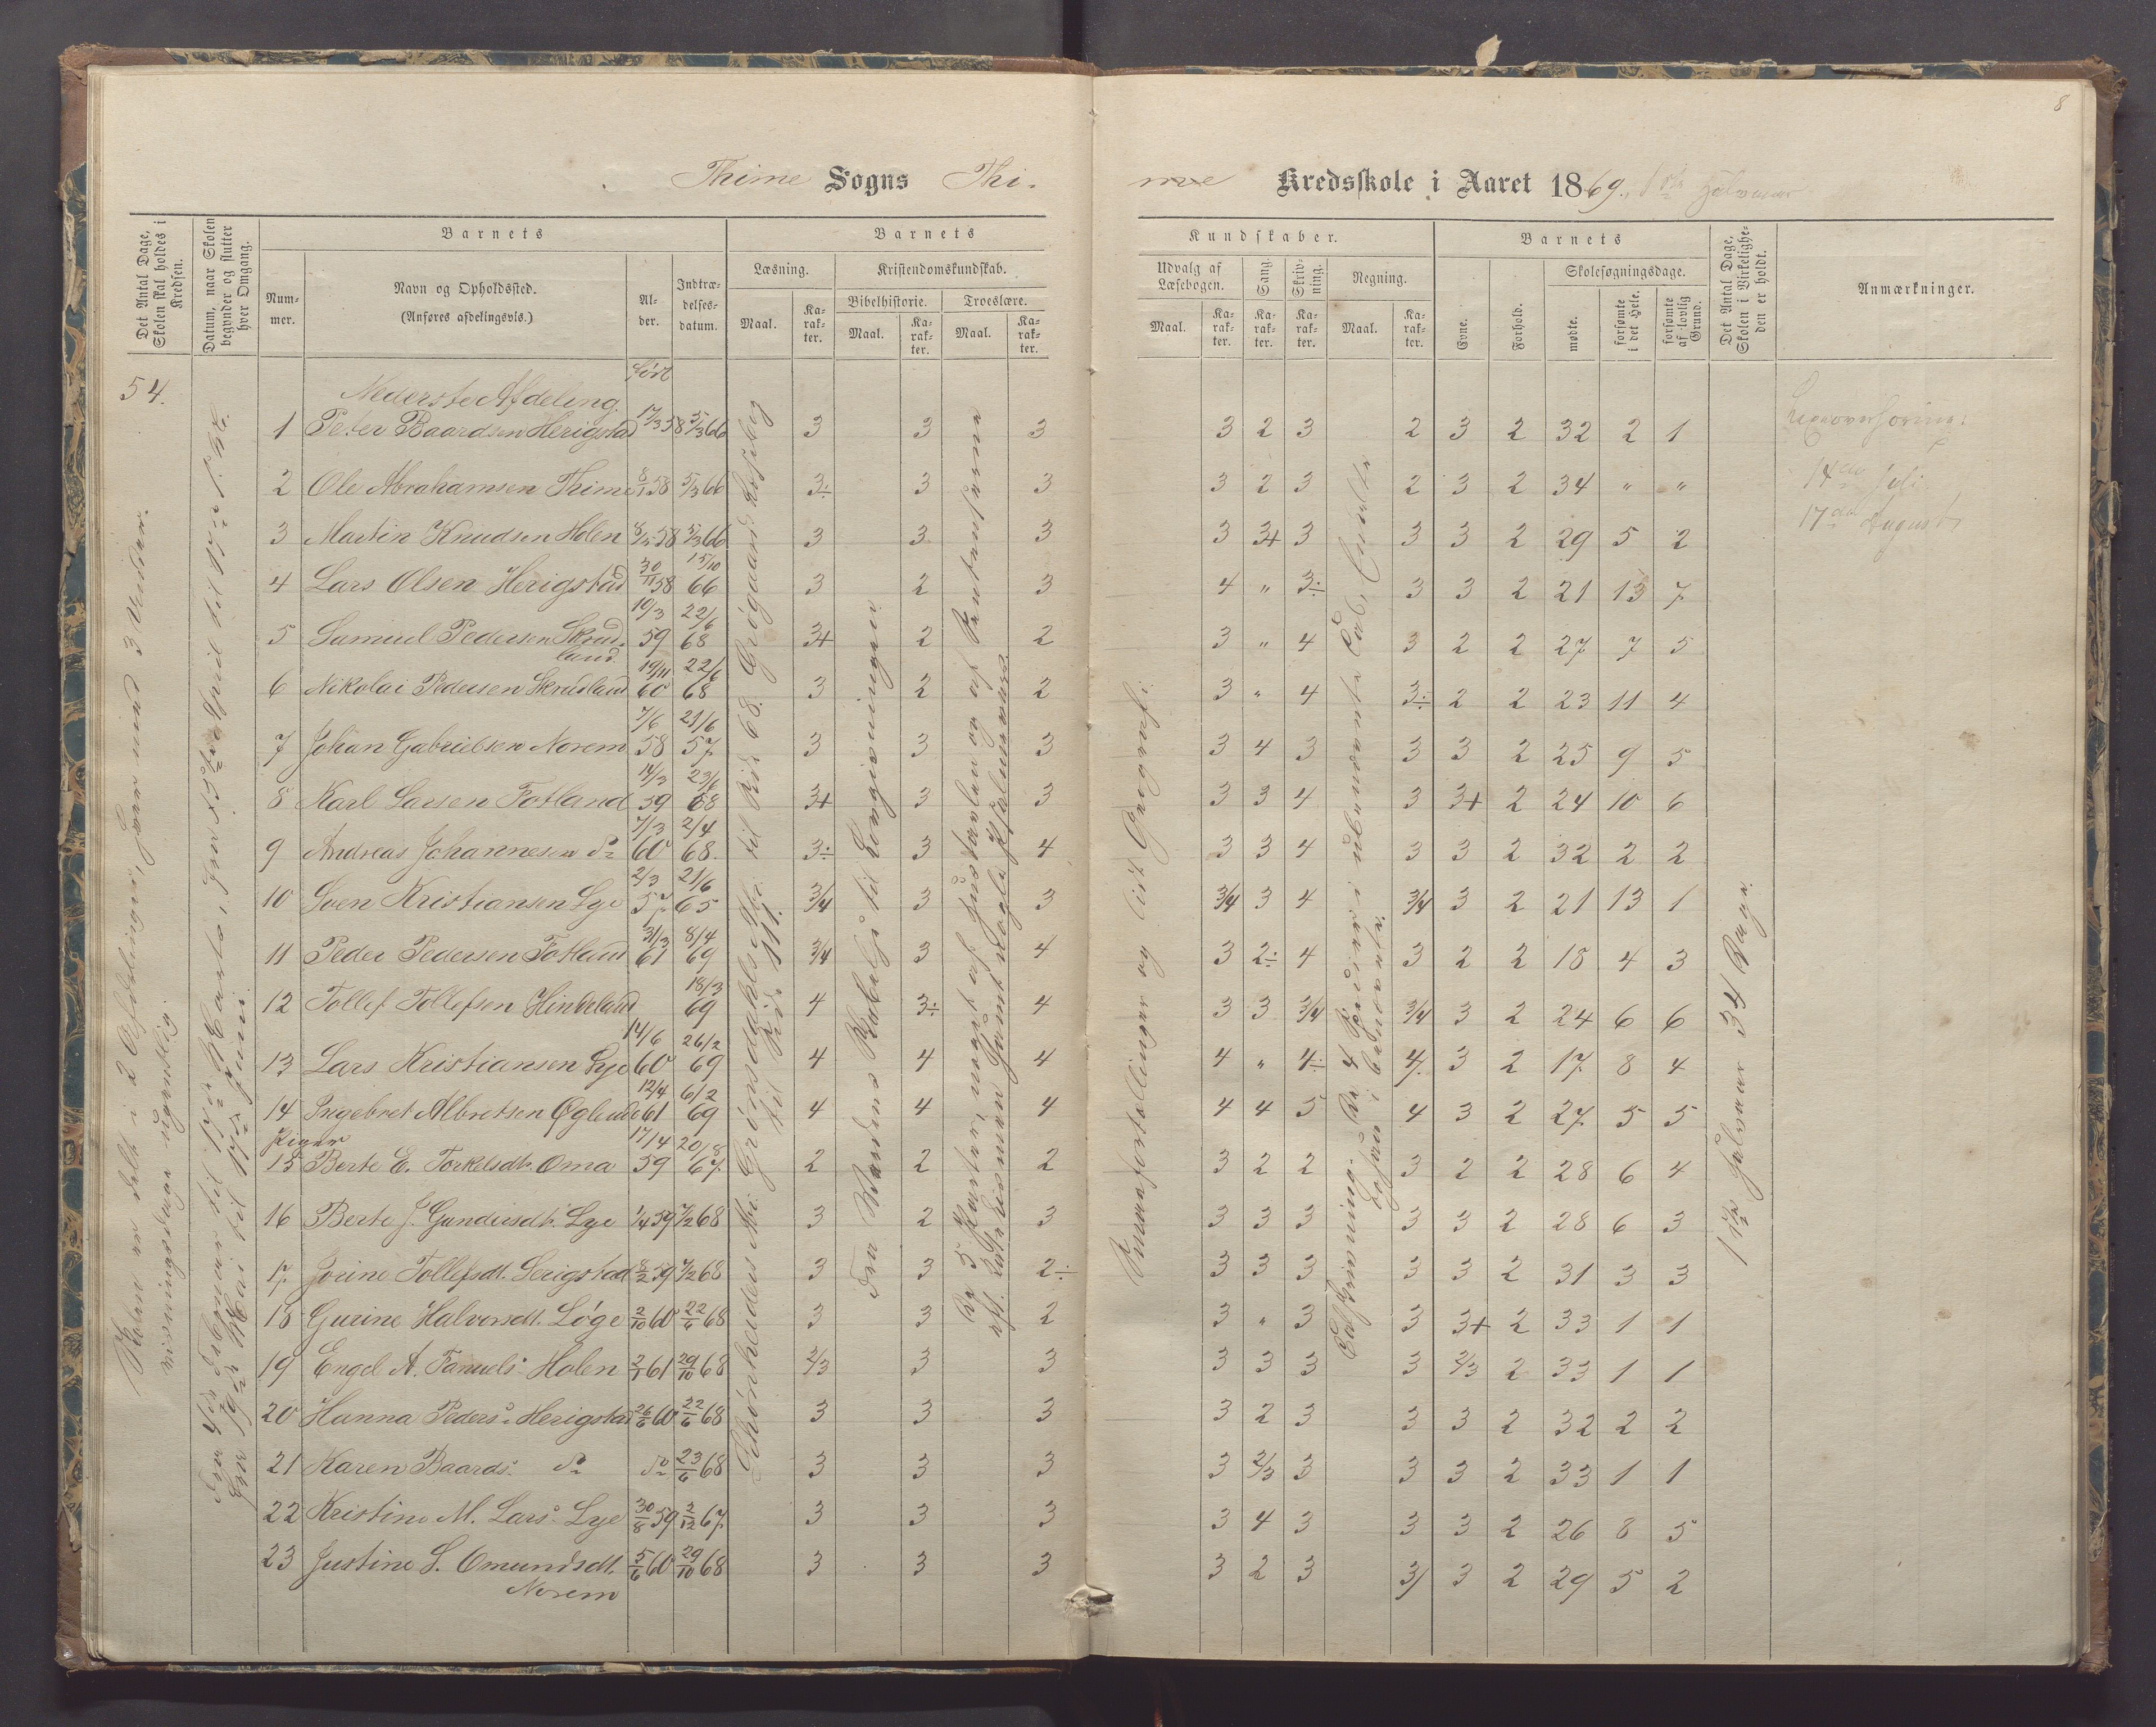 8
Thime Sogns Thi-
me Kredsskole i Aaret 1869, 1ste Halvaar
Det Antal Dage, Skolen skal holdes i Kredsen.
Datum, naar Skolen begynder og slutter hver Omgang.
Barnets
Num-mer.
Navn og Opholdssted.
(Anføres afdelingsvis.)
Al-der.
Indtræ-delses-datum.
Barnets
Læsning.
Kristendomskundskab.
Bibelhistorie.
Troeslære.
Maal.
Ka-rak-ter.
Maal.
Ka-rak-ter.
Maal.
Ka-rak-ter.
Kundskaber.
Udvalg af Læsebogen.
Sang.
Skriv-ning.
Regning.
Maal.
Ka-rak-ter.
Ka-rak-ter.
Ka-rak-ter.
Maal.
Ka-rak-ter.
Barnets
Evne.
Forhold.
Skolesøgningsdage.
mødte.
forsømte i det Hele.
forsømte af lovlig Grund.
Det Antal Dage, Skolen i Virkelighe-den er holdt.
Anmærkninger.
54.
født
Nederste Afdeling.
1 Peter Baardsen Herigstad 17/3 58 5/3 66 3 3 3 3 2 3 2 3 2 32 2 1
2 Ole Abrahamsen Thime 8/1 58 5/3 66 3÷ 3 3 3 2 3 2 3 2 34 " "
3 Martin Knudsen Holen 58 5/3 66 3 3 3 3 3+ 3 3 3 2 29 5 2
4 Lars Olsen Herigstad 30/11 58 15/10 66 3 2 3 4 " 3÷ 3 3 2 21 13 7
5 Samuel Pedersen Skrud-land 10/3 59 22/6 68 3+ 2 2 3 " 4 3 2 2 27 7 5
6 Nikolai Pedersen Skrudland 19/11 60 22/6 68 3 2 2 3 " 4 3÷ 2 2 23 11 4
7 Johan Gabrielsen Norem 7/6 58 21/6 57 3 3 3 3 4 3 3 3 2 25 9 5
8 Karl Larsen Fotland 14/3 59 23/6 68 3+ 3 3 3 3 4 3 3+ 2 24 10 6
9 Andreas Johannesen do 7/3 60 2/4 68. 3÷ 3 4 3 3 4 3 3 2 32 2 2
10 Sven Kristiansen Lye 2/3 57 21/6 65 3/4 3 3 3/4 3 4 3/4 3 2 21 13 1
11 Peder Pedersen Fotland 31/3 61 8/4 69 3/4 3 4 3 2÷ 4 3 2 2 18 4 3
12 Tollef Tollefsen Hinkeland 18/3 69 4 3÷ 4 3 3 3/4 3/4 3 2 24 6 6
13 Lars Kristiansen Lye 14/6 60 26/2 69 4 4 4 4 " 4÷ 4 3 2 17 8 4
14 Ingebret Albretsen Øglend 12/4 61 6/2 69 4 4 4 4 4 5 4 3 2 27 5 5
Piger
15 Berte E. Torkelsdt. Oma 17/4 59 20/8 67 2 2 2 3 2 2 3 2 2 28 6 4
16 Berte J. Gundersdt. Lye 1/4 59 7/2 68 3 2 3 3 3 3 3 3 2 28 6 3
17 Jorine Tollefsdt. Serigstad 8/2 59 7/2 68 3 3 2÷ 3 3 3 3 3 2 31 3 3
18 Gurine Halvorsdt. Løge 2/10 60 22/6 68 3 3 2 3 " 3 3 3+ 2 33 1 1
19 Engel A. Fanuels. Holen 2/1 61 29/10 68 2/3 3 3 3 3 3 3 2/3 2 33 1 1
20 Hanna Peders. Herigstad 26/6 60 22/6 68 3 3 3 3 2 3 3 3 2 32 2 2
21 Karen Baards. do do 23/6 68 3 3 3 3 2/3 3 3 3 2 33 1 1
22 Kristine M. Lars. Lye 30/8 59 2/12 67 3 3 3 3 4 3 3 3 2 26 8 5
23 Justine S. Omundsdt. Norem 5/6 60 29/10 68 3 3 3 3 2 3 3 3 2 29 5 2
Skolen er delt i 2 Afdelinger, hver med 3
Fra Februar til 17de Marts, fra 5te April til 17de
Fra 19de Mai til 17de Juni
til Side 68. Grøgaards Læsebog
til Side 111.
Fra Verdens Skabelse til Lovgivningen
Smaafortællinger og lidt Geografi.
1ste Halvaar 34 Dage.
14de Juli
17de August